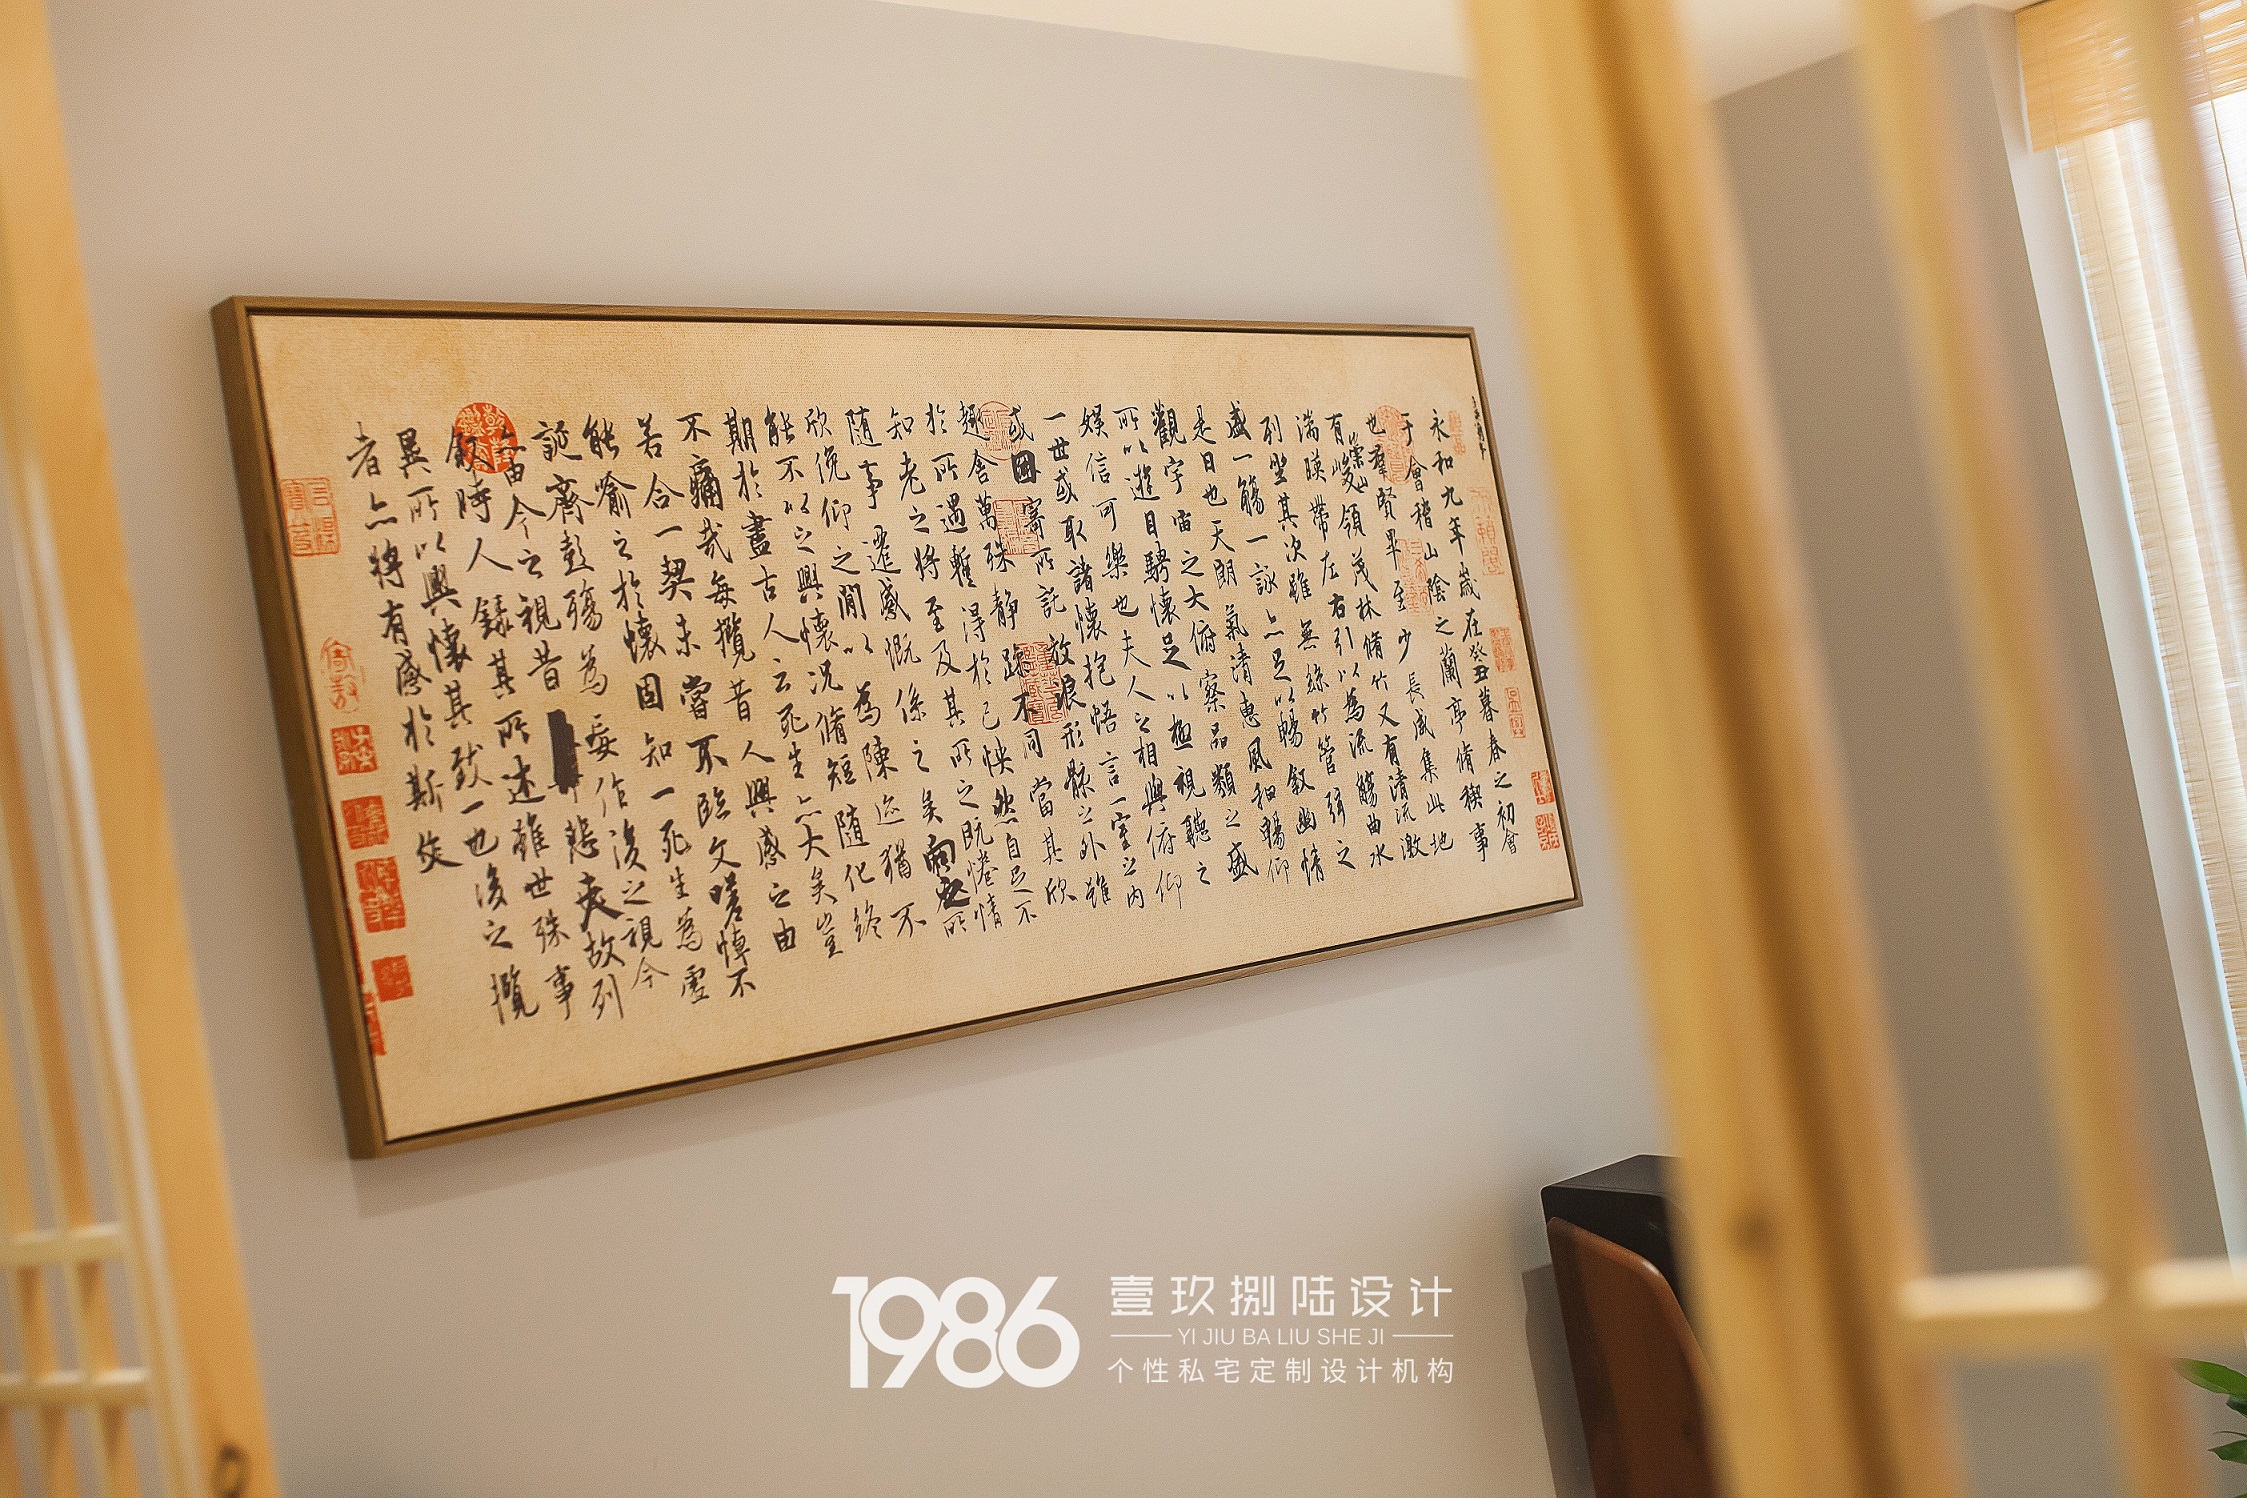 永和九年歲在癸丑暮春之初會
于會稽山陰之蘭亭脩稧事
也羣賢畢至少長咸集此地
有崇山峻領茂林脩竹又有清流激
湍暎帶左右引以為流觴曲水
列坐其次雖無絲竹管弦之
盛一觴一詠亦足以暢敘幽情
是日也天朗氣清惠風和暢仰
觀宇宙之大俯察品類之盛
所以遊目騁懷足以極視聽之
娛信可樂也夫人之相與俯仰
一世或取諸懷抱悟言一室之內
或因寄所託放浪形骸之外雖
趣舍萬殊靜躁不同當其欣
於所遇蹔得於己怏然自足不
知老之將至及其所之既惓情
隨事遷感慨係之矣向之所
欣俛仰之閒以為陳迹猶不
能不以之興懷況脩短隨化終
期於盡古人云死生亦大矣豈
不痛哉每攬昔人興感之由
若合一契未嘗不臨文嗟悼不
能喻之於懷固知一死生為虛
誕齊彭殤為妄作後之視今
亦由今之視昔悲夫故列
敘時人錄其所述雖世殊事
異所以興懷其致一也後之攬
者亦將有感於斯文
1986
壹玖捌陆设计
YI JIU BA LIU SHE JI
个性私宅定制设计机构